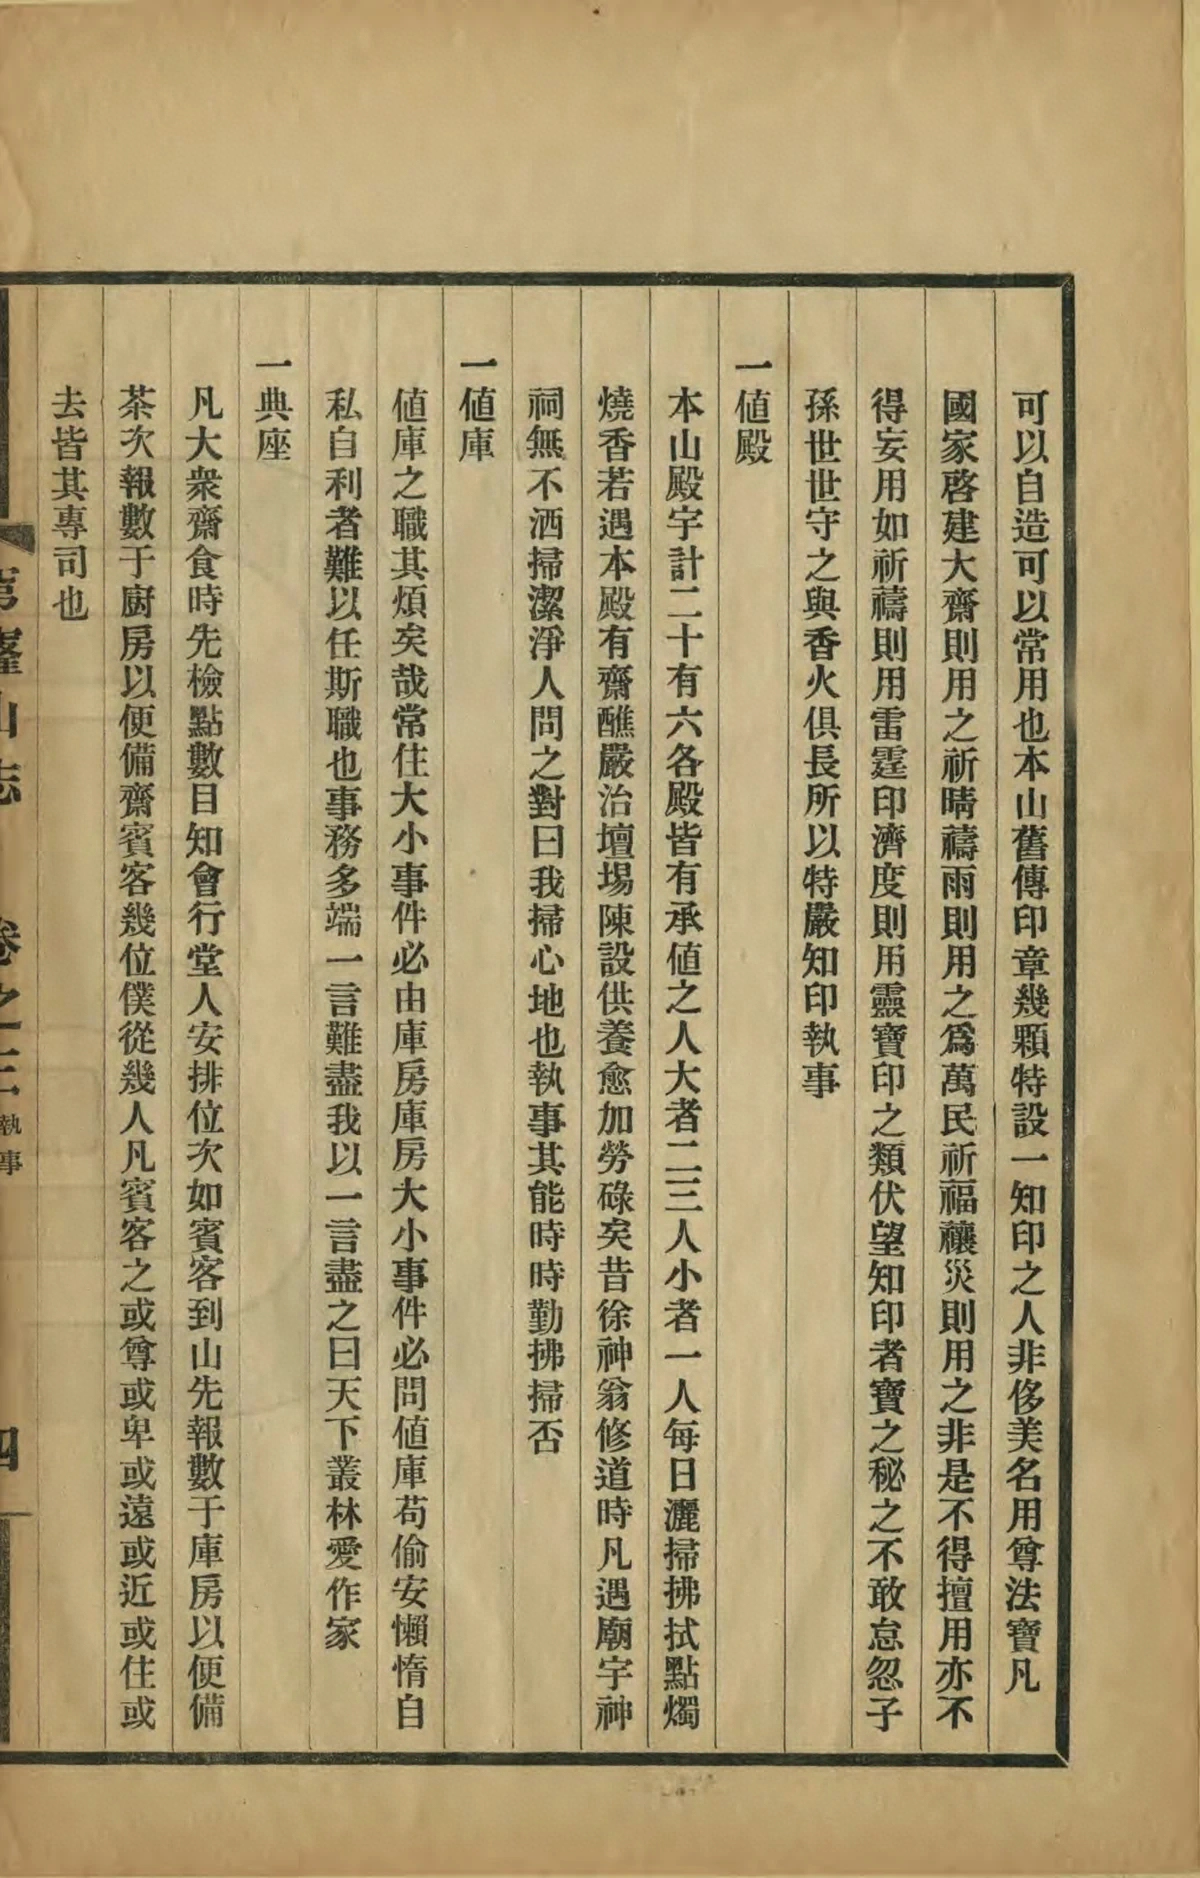 可以自造可以常用也本山舊傳印章幾顆特設一知印之人非侈美名用尊法寶凡
國家啓建大齋則用之祈晴禱雨則用之爲萬民祈福禳災則用之非是不得擅用亦不
得妄用如祈禱則用雷霆印濟度則用靈寶印之類伏望知印者寶之秘之不敢怠忽子
孫世世守之與香火俱長所以特嚴知印執事
一値殿
本山殿宇計二十有六各殿皆有承値之人大者二三人小者一人每日灑掃拂拭點燭
燒香若遇本殿有齋醮嚴治壇場陳設供養愈加勞碌矣昔徐神翁修道時凡遇廟宇神
祠無不洒掃潔淨人問之對曰我掃心地也執事其能時時勤拂掃否
一値庫
値庫之職其煩矣哉常住大小事件必由庫房庫房大小事件必問値庫苟偷安懶惰自
私自利者難以任斯職也事務多端一言難盡我以一言盡之曰天下叢林愛作家
一典座
凡大衆齋食時先檢點數目知會行堂人安排位次如賓客到山先報數于庫房以便備
茶次報數于廚房以便備齋賓客幾位僕從幾人凡賓客之或尊或卑或遠或近或住或
去皆其專司也
山志 卷之三 執事 四